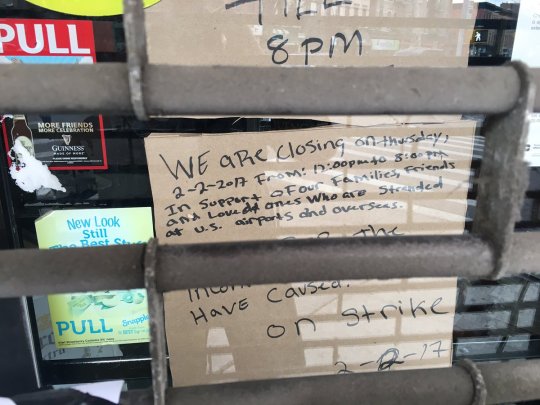 TILL
8PM
PULL
MORE FRIENDS
MORE CELEBRATION
GUINNESS
MADE OF MORE
WE ARE closing on thursday,
2-2-2017 From: 12:00pm to 8:00pm
In Support of our Families, Friends
and Loved ones Who are Stranded
at U.S. airports and overseas.
the
Have caused.
on strike
2-2-17
New Look
Still
The Best Stuff
PULL
Snapple